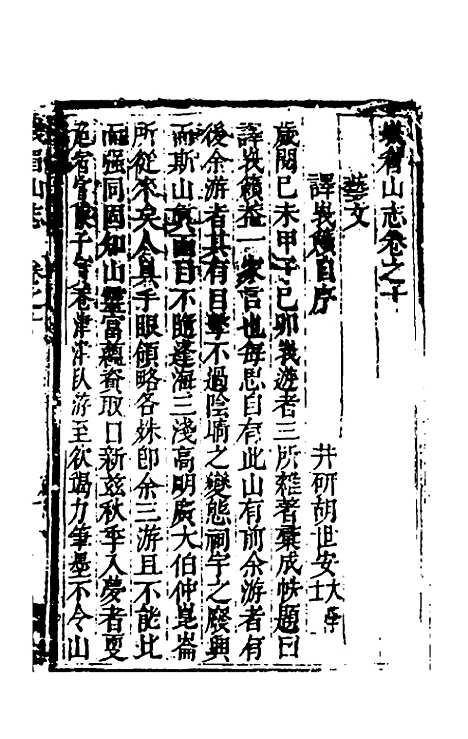 峩眉山志卷之十
藝文
譯峩籟自序
井研胡世安大學士
歲閱己未甲子己卯峩遊者三所雜著彙成帙題曰
譯峩籟葢一家言也每思自有此山有前余游者有
後余游者其有目擊不過陰晴之變態祠宇之廢興
而斯山真面目不隨蓬海三淺高明廣大伯仲崑崙
所從來矣人具手眼領略各姝卽余三游且不能比
而强同固知山靈富蘊奇取日新兹秋季入夢者更
津津臥游至欲竭力筆墨不令山
眉山志